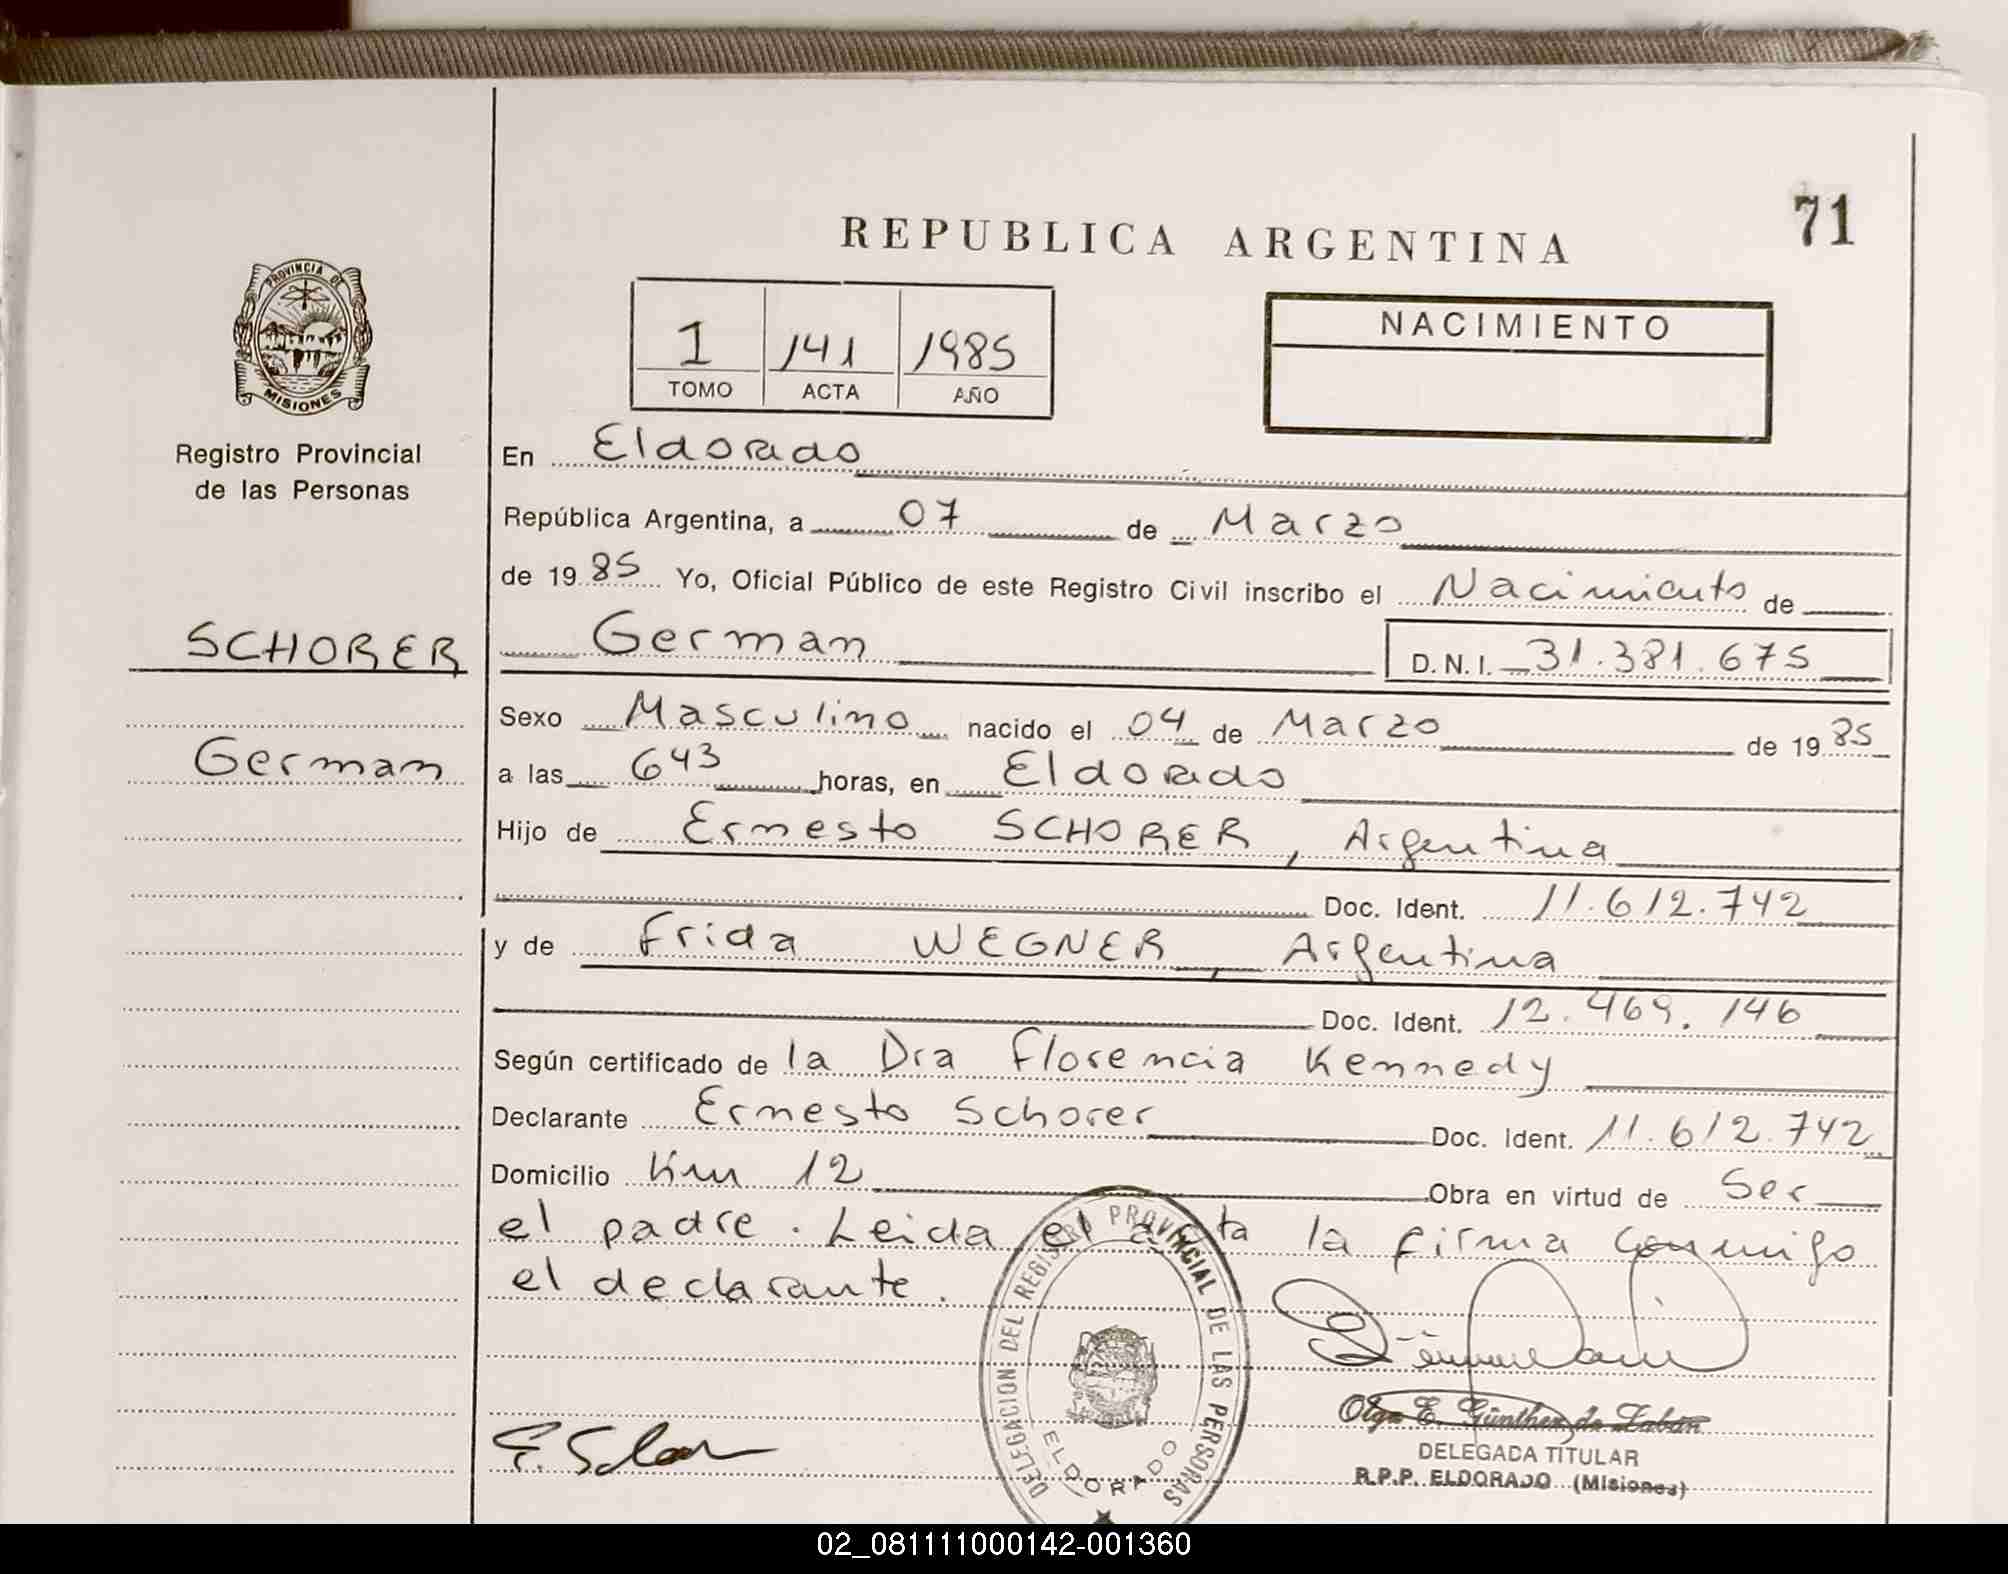 71
REPUBLICA ARGENTINA
PROVINCIA DE
MISIONES
Registro Provincial
de las Personas
1 141 1985
TOMO ACTA AÑO
NACIMIENTO
En Eldorado
República Argentina, a 07 de Marzo
de 1985 Yo, Oficial Público de este Registro Civil inscribo el Nacimiento de
SCHORER
German D.N.I. 31.381.675
Sexo Masculino nacido el 04 de Marzo de 1985
German
a las 643 horas, en Eldorado
Hijo de Ernesto SCHORER, Argentina
Doc. Ident. 11.612.742
y de Frida WEGNER, Argentina
Doc. Ident. 12.469.146
Según certificado de la Dra Florencia Kennedy
Declarante Ernesto Schorer Doc. Ident. 11.612.742
Domicilio Km 12 Obra en virtud de Ser
el padre. Leida el acta la firma conmigo
el declarante.
DELEGACION DEL REGISTRO PROVINCIAL DE LAS PERSONAS
ELDORADO
Olga E. Günther de Labán
DELEGADA TITULAR
R.P.P. ELDORADO (Misiones)
02_081111000142-001360